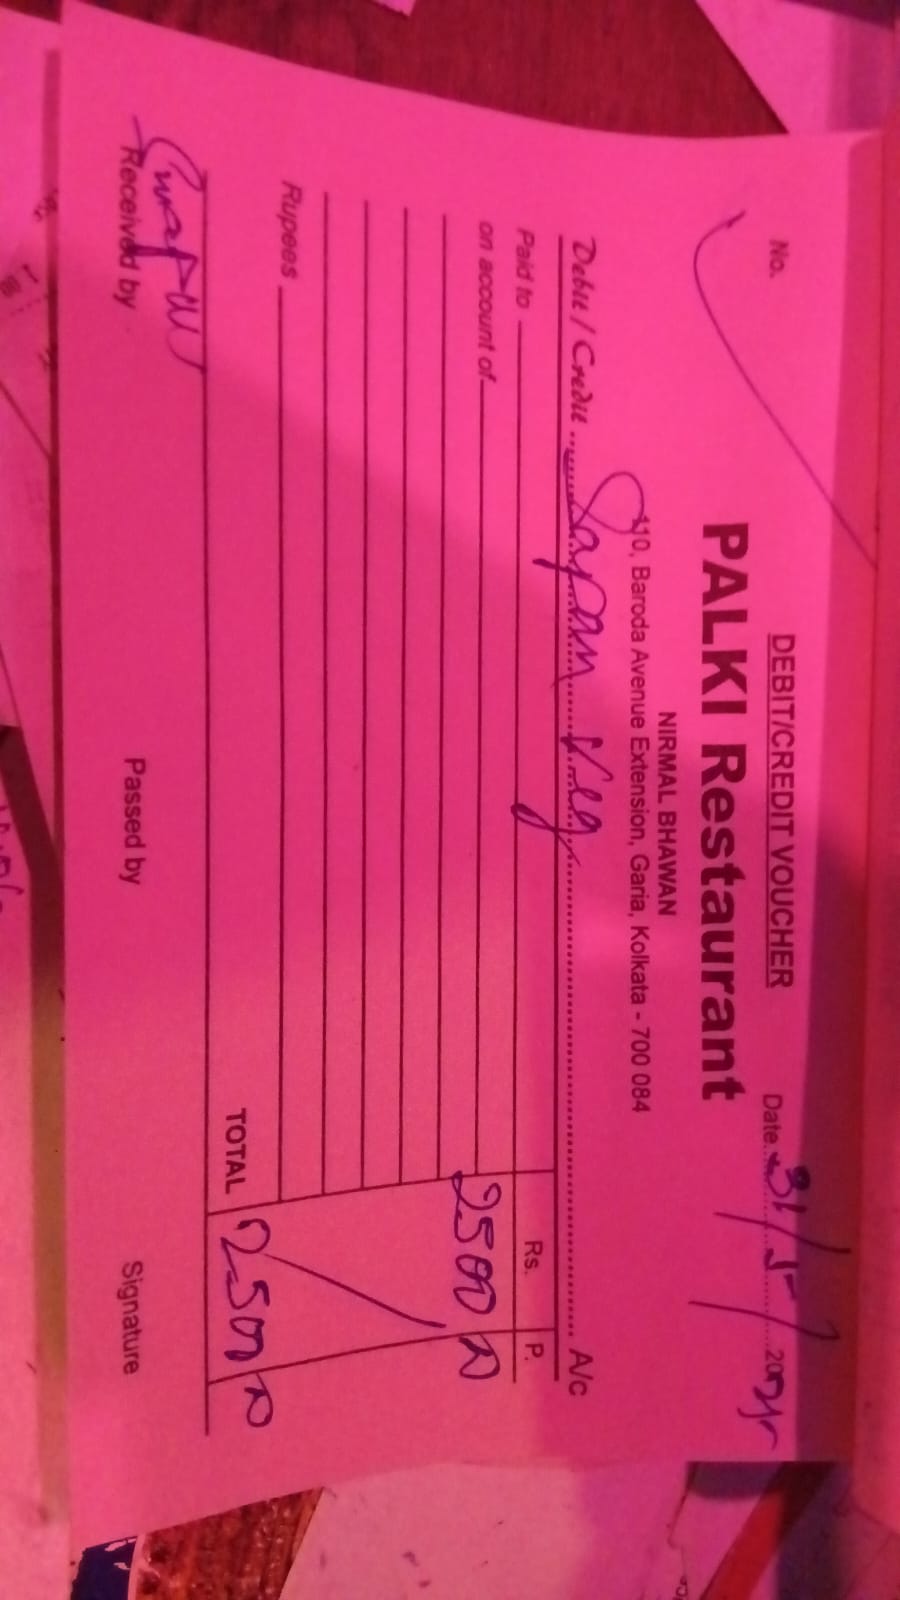 DEBIT/CREDIT VOUCHER
No. Date 31/5/2025
PALKI Restaurant
NIRMAL BHAWAN
110, Baroda Avenue Extension, Garia, Kolkata - 700 084
Debit / Credit Sapan Veg A/c
Paid to Rs. P.
on account of 2500 00
Rupees
TOTAL 2500 00
Received by Passed by Signature